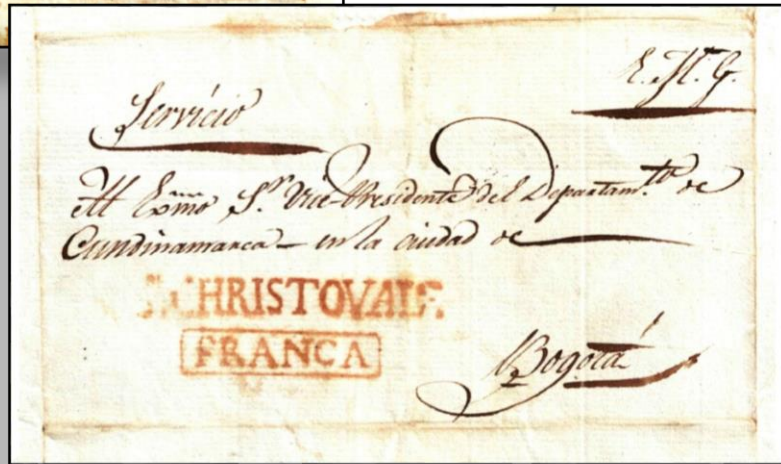 E. N. G.
Servicio
Al Exmo Sr. Vice-Presidente del Departamto. de
Cundinamarca – en la ciudad de
S. CHRISTOVAL
FRANCA
Bogotá